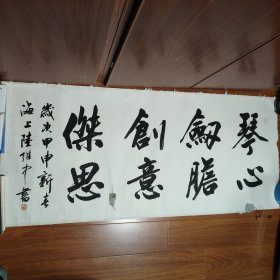 琴心
劔膽
創意
傑思
歲次甲申新春
海上陸維中書